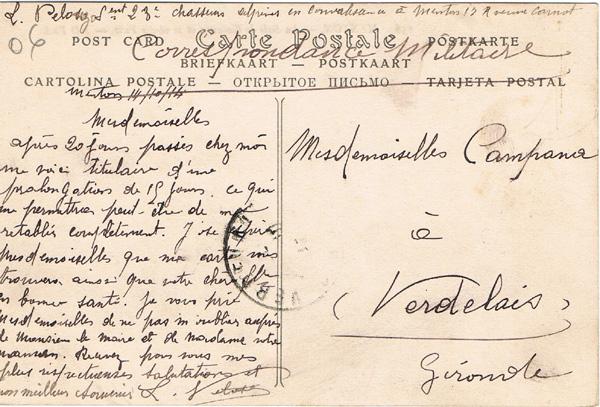 L. Pelous Sent 23e chasseurs alpins en convalescence à Menton 17 Avenue Carnot
06
Carte Postale
POST CARD POSTKARTE
Correspondance Militaire
BRIEFKAART POSTKAART
CARTOLINA POSTALE — ОТКРЫТОЕ ПИСЬМО — TARJETA POSTAL
Menton 14/10/15
Mesdemoiselles
après 20 jours passés chez moi
me voici titulaire d'une
prolongation de 15 jours. ce qui
me permettra peut être de me
retablir completement. J'ose
Mesdemoiselles que ma carte vous
trouvera ainsi que votre chere
en bonne santé. je vous prie
Mesdemoiselles de ne pas m'oublier auprès
de Monsieur le maire et de Madame votre
maman. Recevez pour vous mes
plus respectueuses salutations et
mon meilleur souvenir L.
Mesdemoiselles Campana
à
(Verdelais)
Gironde